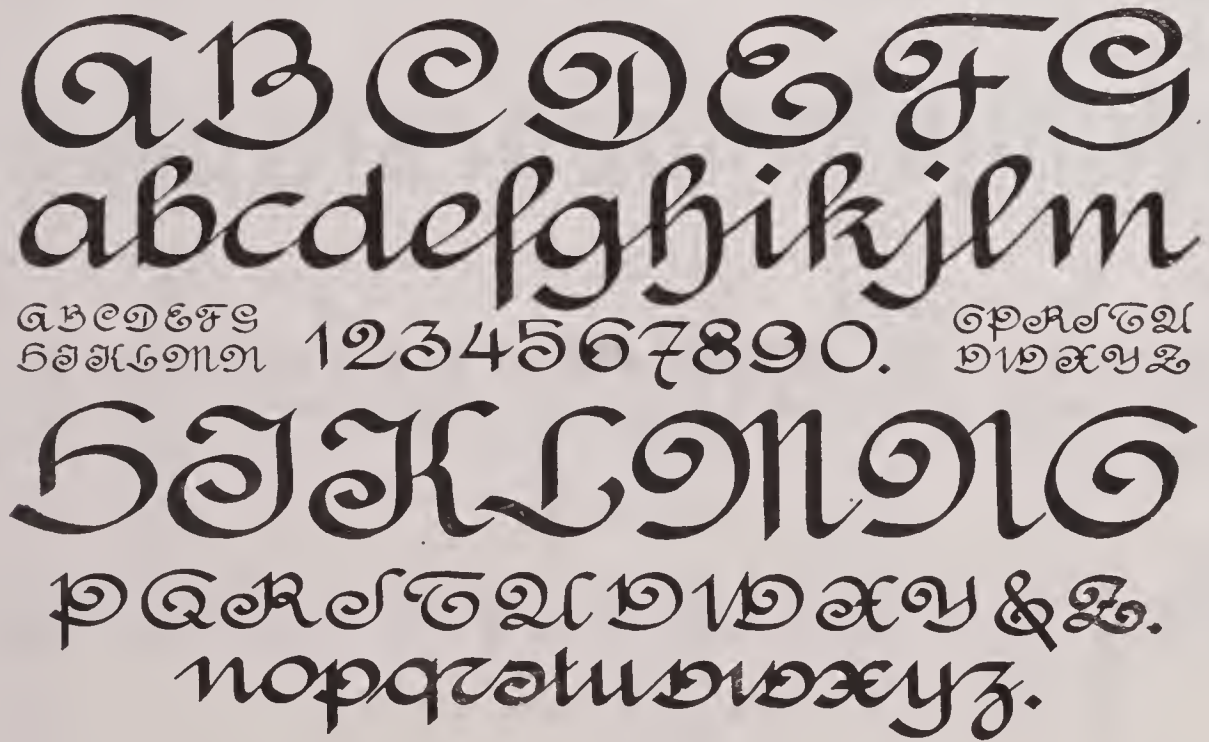 A B C D E F G
a b c d e f g h i k j l m
A B C D E F G
H I K L M N
1 2 3 4 5 6 7 8 9 0.
O P R S T U
V W X Y Z
H I K L M N O
P Q R S T U V W X Y & Z.
n o p q r s t u v w x y z.